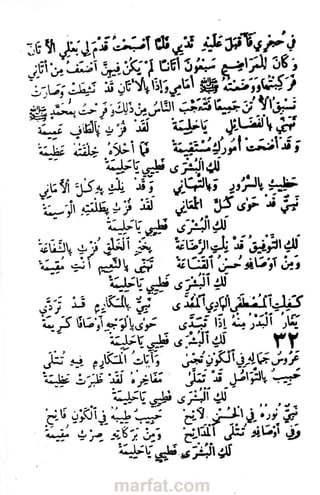 فِي حُجْرِي فَأَقْبَلَ عَلَيْهِ ثَدْيِي فَلَمَّا أَصْبَحْتُ قَدَّمَ لِي بَعْلِي الْأَتَانَ
وَكَانَ لِلْمَرَاضِعِ سَبْعُونَ أَتَانًا لَمْ يَكُنْ فِيهِنَّ أَضْعَفُ مِنْ أَتَانِي
فَرَكِبْتُهَا وَوَضَعْتُهُ ﷺ أَمَامِي وَإِذَا بِالْأَتَانِ قَدْ نَشِطَتْ وَصَارَتْ
تَسْبِقُ الْأُتُنَ جَمِيعًا فَتَعَجَّبَ النَّاسُ مِنْ ذٰلِكَ وَفَرِحَتْ بِمُحَمَّدٍ ﷺ
تَهَنِّي بِالْفَضَائِلِ يَاحَلِيمَة لَقَدْ فُزْتِ بِأَلْطَافٍ عَمِيمَة
وَقَدْ أَضْحَتْ أُمُورُكِ مُسْتَقِيمَة فَمَا أَحْلَاهُ خِلْقَتُهُ عَظِيمَة
لَكِ الْبُشْرَى فَطِيبِي يَاحَلِيمَة
حَظِيتِ بِالسُّرُورِ وَبِالتَّهَانِي وَقَدْ نِلْتِ بِهِ كُلَّ الْأَمَانِي
نَبِيٌّ قَدْ حَوَى كُلَّ الْمَعَانِي لَقَدْ فُزْتِ بِطَلْعَتِهِ الْوَسِيمَة
لَكِ الْبُشْرَى فَطِيبِي يَاحَلِيمَة
لَكِ التَّوْفِيقُ قَدْ نِلْتِ الرَّضَاعَة بِخَيْرِ الْخَلْقِ فُزْتِ بِالشَّفَاعَة
وَمِنْ أَوْصَافِهِ حُسْنُ الْقَنَاعَة تَهَنِّي بِالنَّعِيمِ أَنْتِ مُقِيمَة
لَكِ الْبُشْرَى فَطِيبِي يَاحَلِيمَة
كَفَلْتِ الْمُصْطَفَى الْهَادِي الْمُفَدَّى نَبِيٌّ بِالْمَكَارِمِ قَدْ تَرَدَّى
يَغَارُ الْبَدْرُ مِنْهُ إِذَا تَبَدَّى حَوَى بِالْوَجْهِ أَوْصَافًا كَرِيمَة
٣٢ لَكِ الْبُشْرَى فَطِيبِي يَاحَلِيمَة
عَرُوسُ جَمَالِهِ فِي الْكَوْنِ تُجْلَى وَآيَاتُ الْمَكَارِمِ فِيهِ تُتْلَى
حَبِيبٌ بِالتَّوَاصُلِ قَدْ تَمَلَّى مَفَاخِرُهُ لَقَدْ ظَهَرَتْ عَظِيمَة
لَكِ الْبُشْرَى فَطِيبِي يَاحَلِيمَة
نَبِيٌّ نُورُهُ فِي الْحُسْنِ لَائِحْ حَبِيبٌ طِيبُهُ فِي الْكَوْنِ فَائِحْ
وَفِي أَوْصَافِهِ تُتْلَى الْمَدَائِحْ وَمِنْ بَرَكَاتِهِ صِرْتِ مُقِيمَة
لَكِ الْبُشْرَى فَطِيبِي يَاحَلِيمَة
marfat.com